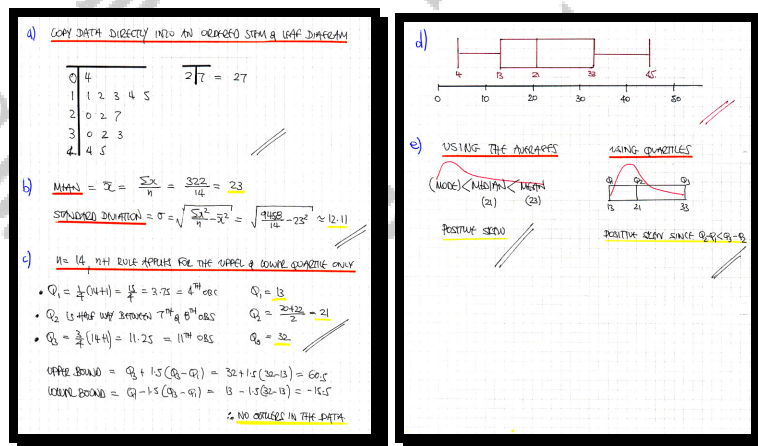 a) COPY DATA DIRECTLY INTO AN ORDERED STEM & LEAF DIAGRAM
0 | 4
1 | 1 2 3 4 5
2 | 0 2 7
3 | 0 2 3
4 | 4 5
2|7 = 27
b) MEAN = x̄ = Σx/n = 322/14 = 23
STANDARD DEVIATION = σ = √(Σx²/n - x̄²) = √(9458/14 - 23²) ≈ 12.11
c) n = 14, n+1 RULE APPLIES FOR THE UPPER & LOWER QUARTILE ONLY
• Q₁ = 1/4(14+1) = 15/4 = 3.75 = 4TH OBS Q₁ = 13
• Q₂ IS HALF WAY BETWEEN 7TH & 8TH OBS Q₂ = 20+22/2 = 21
• Q₃ = 3/4(14+1) = 11.25 = 11TH OBS Q₃ = 32
UPPER BOUND = Q₃ + 1.5(Q₃-Q₁) = 32 + 1.5(32-13) = 60.5
LOWER BOUND = Q₁ - 1.5(Q₃-Q₁) = 13 - 1.5(32-13) = -15.5
∴ NO OUTLIERS IN THE DATA
d)
4 13 21 32 45
0 10 20 30 40 50
e) USING THE AVERAGES
(MODE) < MEDIAN < MEAN
(21) (23)
POSITIVE SKEW
USING QUARTILES
Q₁ Q₂ Q₃
13 21 33
POSITIVE SKEW SINCE Q₂-Q₁<Q₃-Q₂